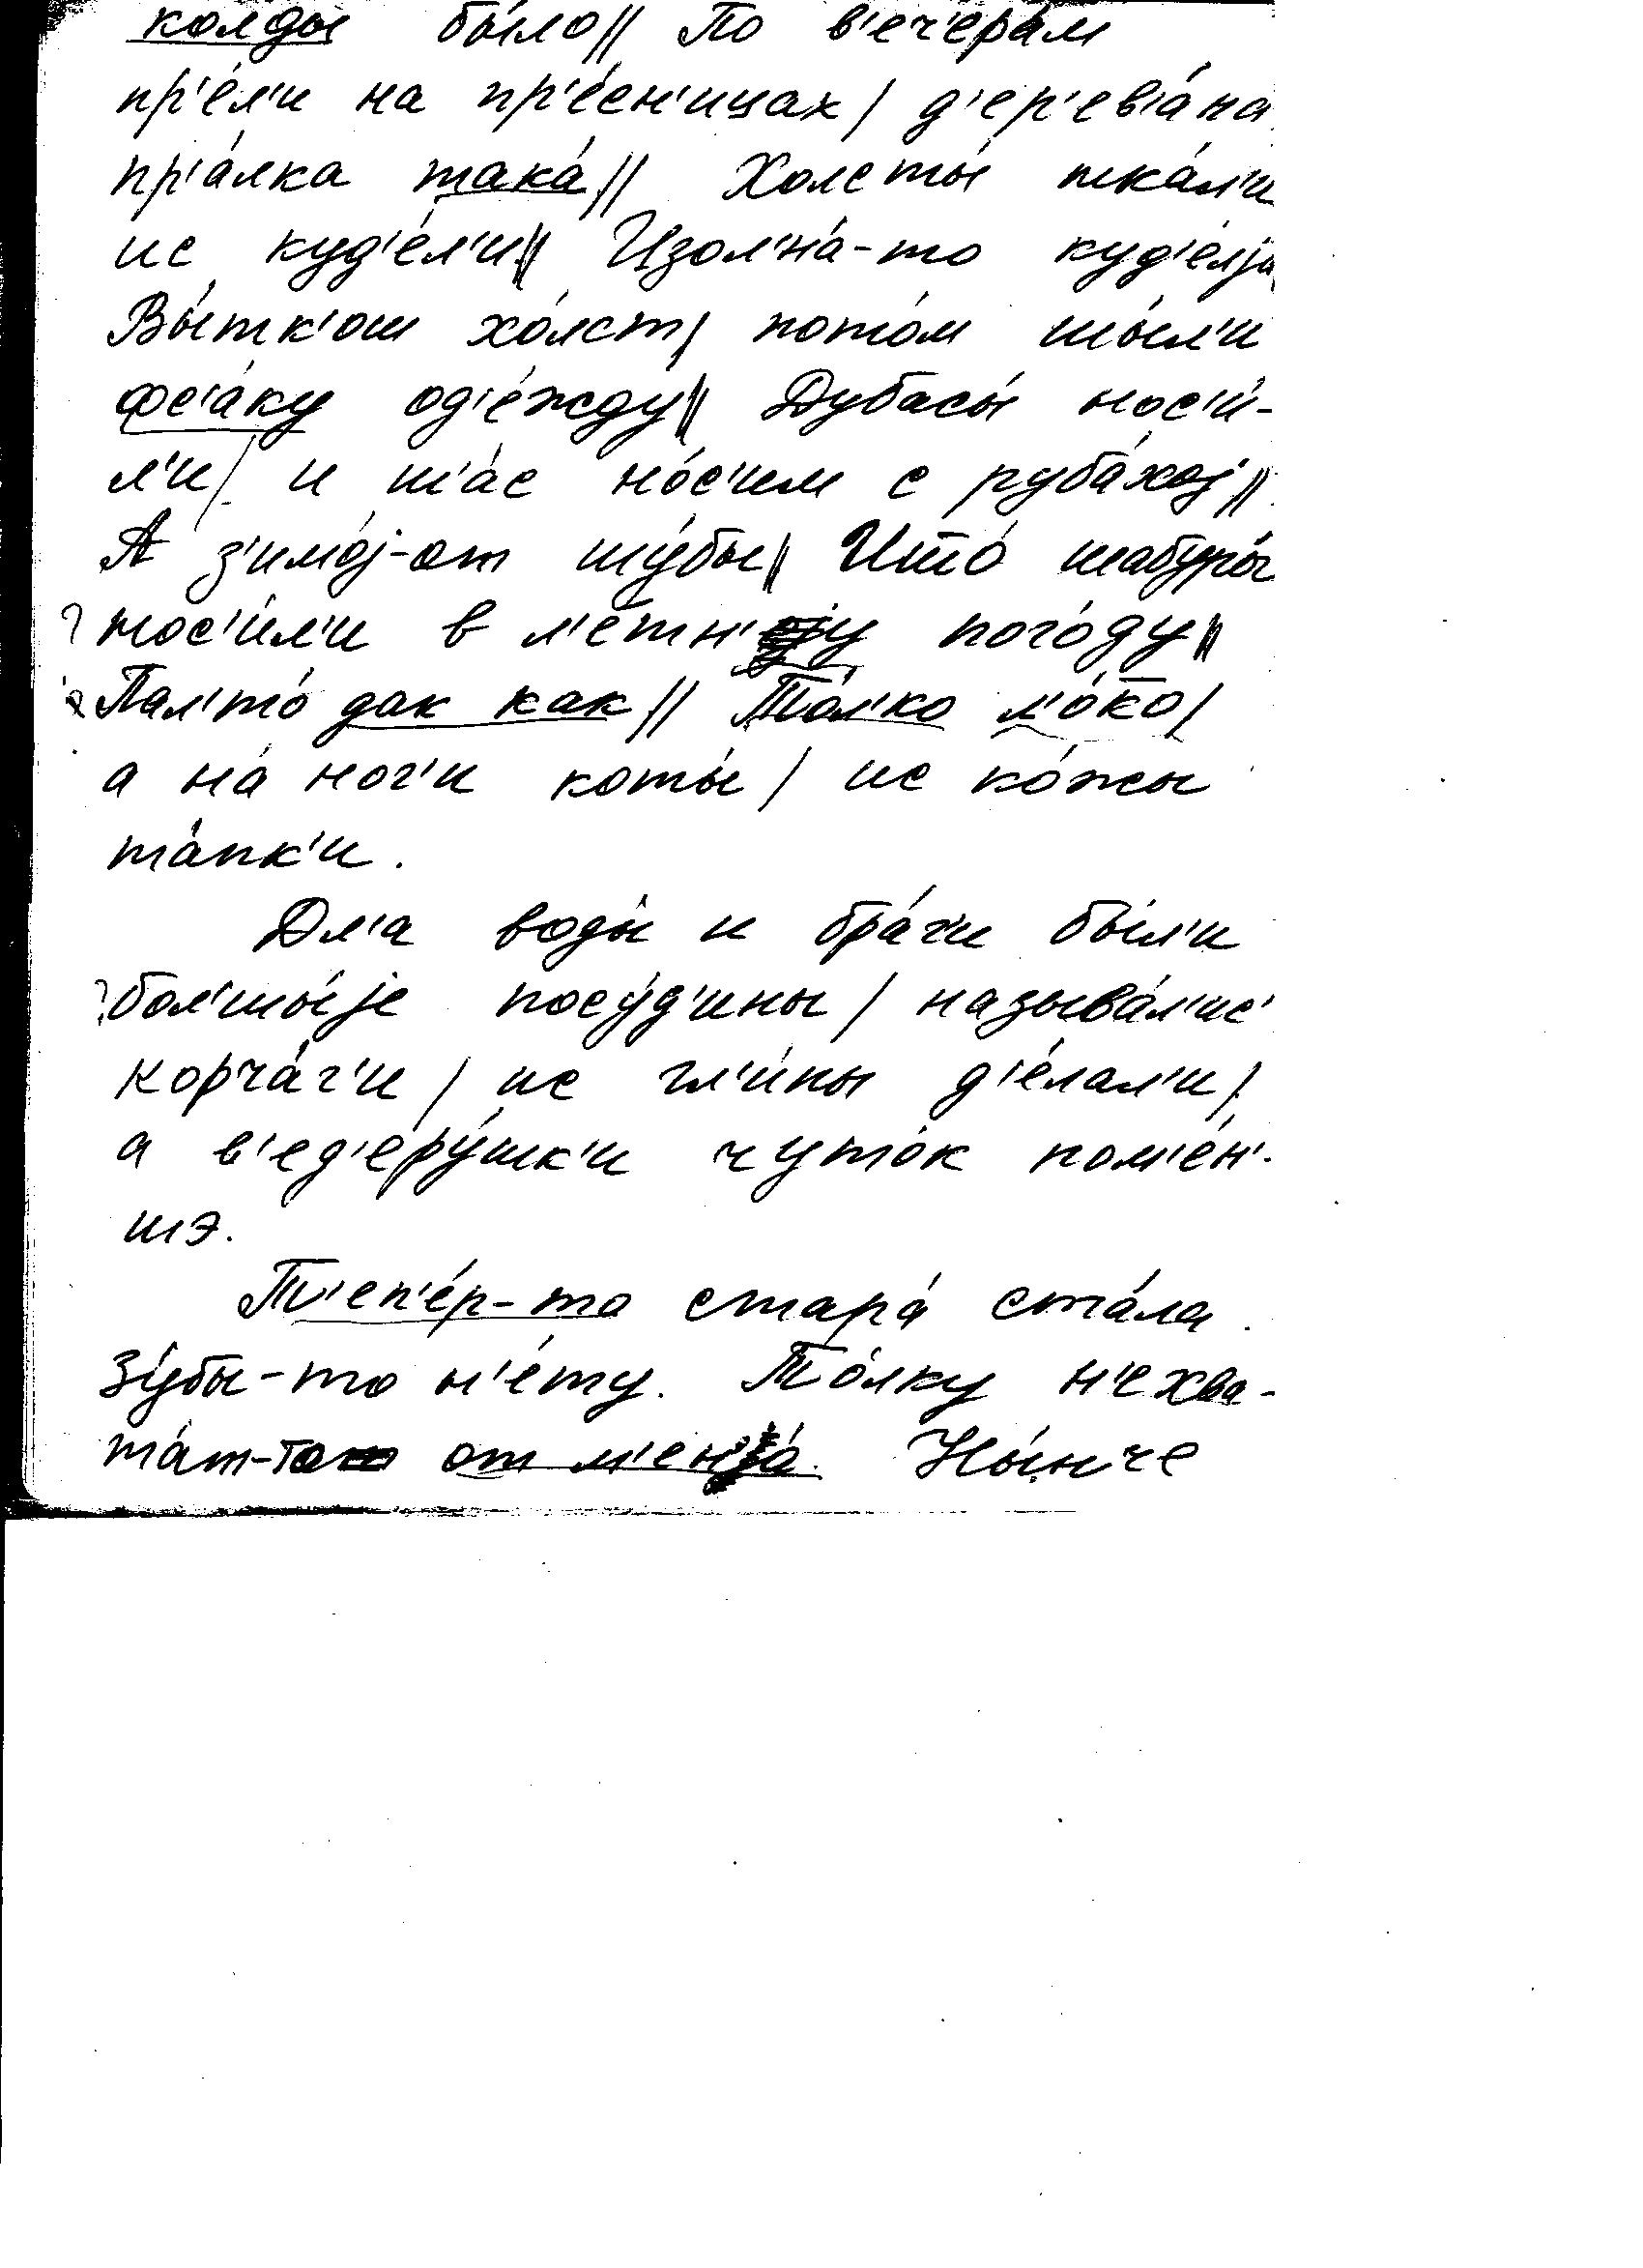 колды бы́ло// По в'еч'ера́м
пр'е́л'и на пр'е́сн'ицах/ д'ер'ев'а́на
пр'а́лка така́// Холсты́ тка́л'и
ис куд'е́л'и// Изол'на́-то куд'е́лjа
Вы́тк'ош хо́лст/ пото́м шы́л'и
фс'а́ку од'е́жду// Дубасы́ нос'и́-
л'и/ и ш'а́с но́с'им с руба́хоj//
А з'имо́j-от шу́бы// Што́ шабуры́
? нос'и́л'и в л'е́тн'у пого́ду//
Пал'то́ дак как// То́л'ко л'о́ко/
а на́ ног'и коты́/ ис ко́жы
та́пк'и.
Дл'а воды́ и бра́г'и бы́л'и
? бол'шы́jе посу́д'ины/ называ́л'ис'
корча́г'и/ ис гл'и́ны д'е́лал'и/
а в'ед'еру́шк'и чуто́к пом'е́н'-
шэ.
Т'еп'е́р-то стара́ ста́ла.
Зу́бы-то н'е́ту. То́лку н'е хва-
та́т-то от м'ен'а́. Ны́нче